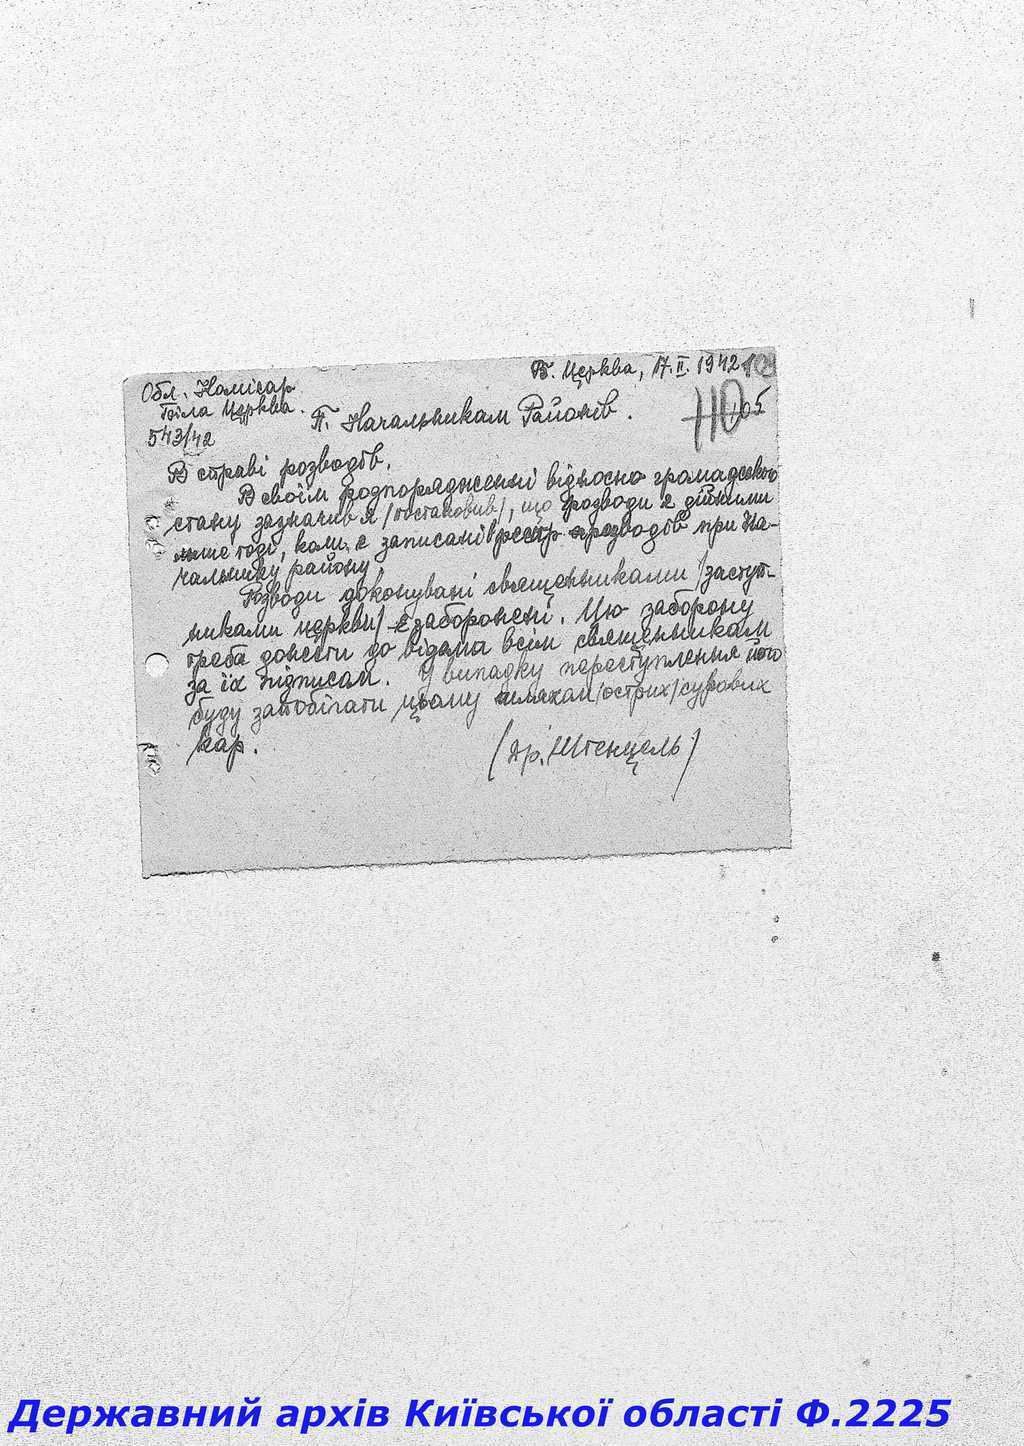 Обл. Комісар
Біла Церква.
543/42
Б. Церква, 17.II.1942
110 105
П. Начальникам Районів.
В справі розводів.
В своїм розпорядженні відносно громадського
стану зазначив я /постановив/, що розводи є дійсними
лише тоді, коли є записані в реєстр розводів при На-
чальнику району.
Розводи доконувані священниками /заступ-
никами церкви/ є заборонені. Цю заборону
треба донести до відома всім священникам
за їх підписом. У випадку переступлення його
буду запобігати цьому шляхом /острих/ сурових
кар.
(Др. Штенцель)
Державний архів Київської області Ф.2225